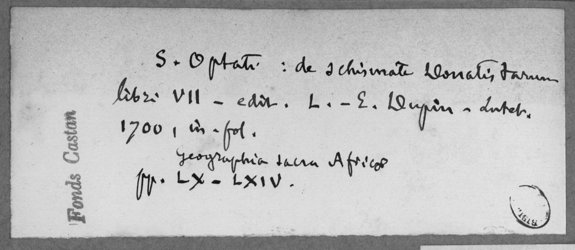 S. Optati : de schismate Donatistarum
libri VII – edit. L.-E. Dupin – Lutet.
1700, in-fol.
Geographia sacra Africæ
pp. LX – LXIV.
Fonds Castan